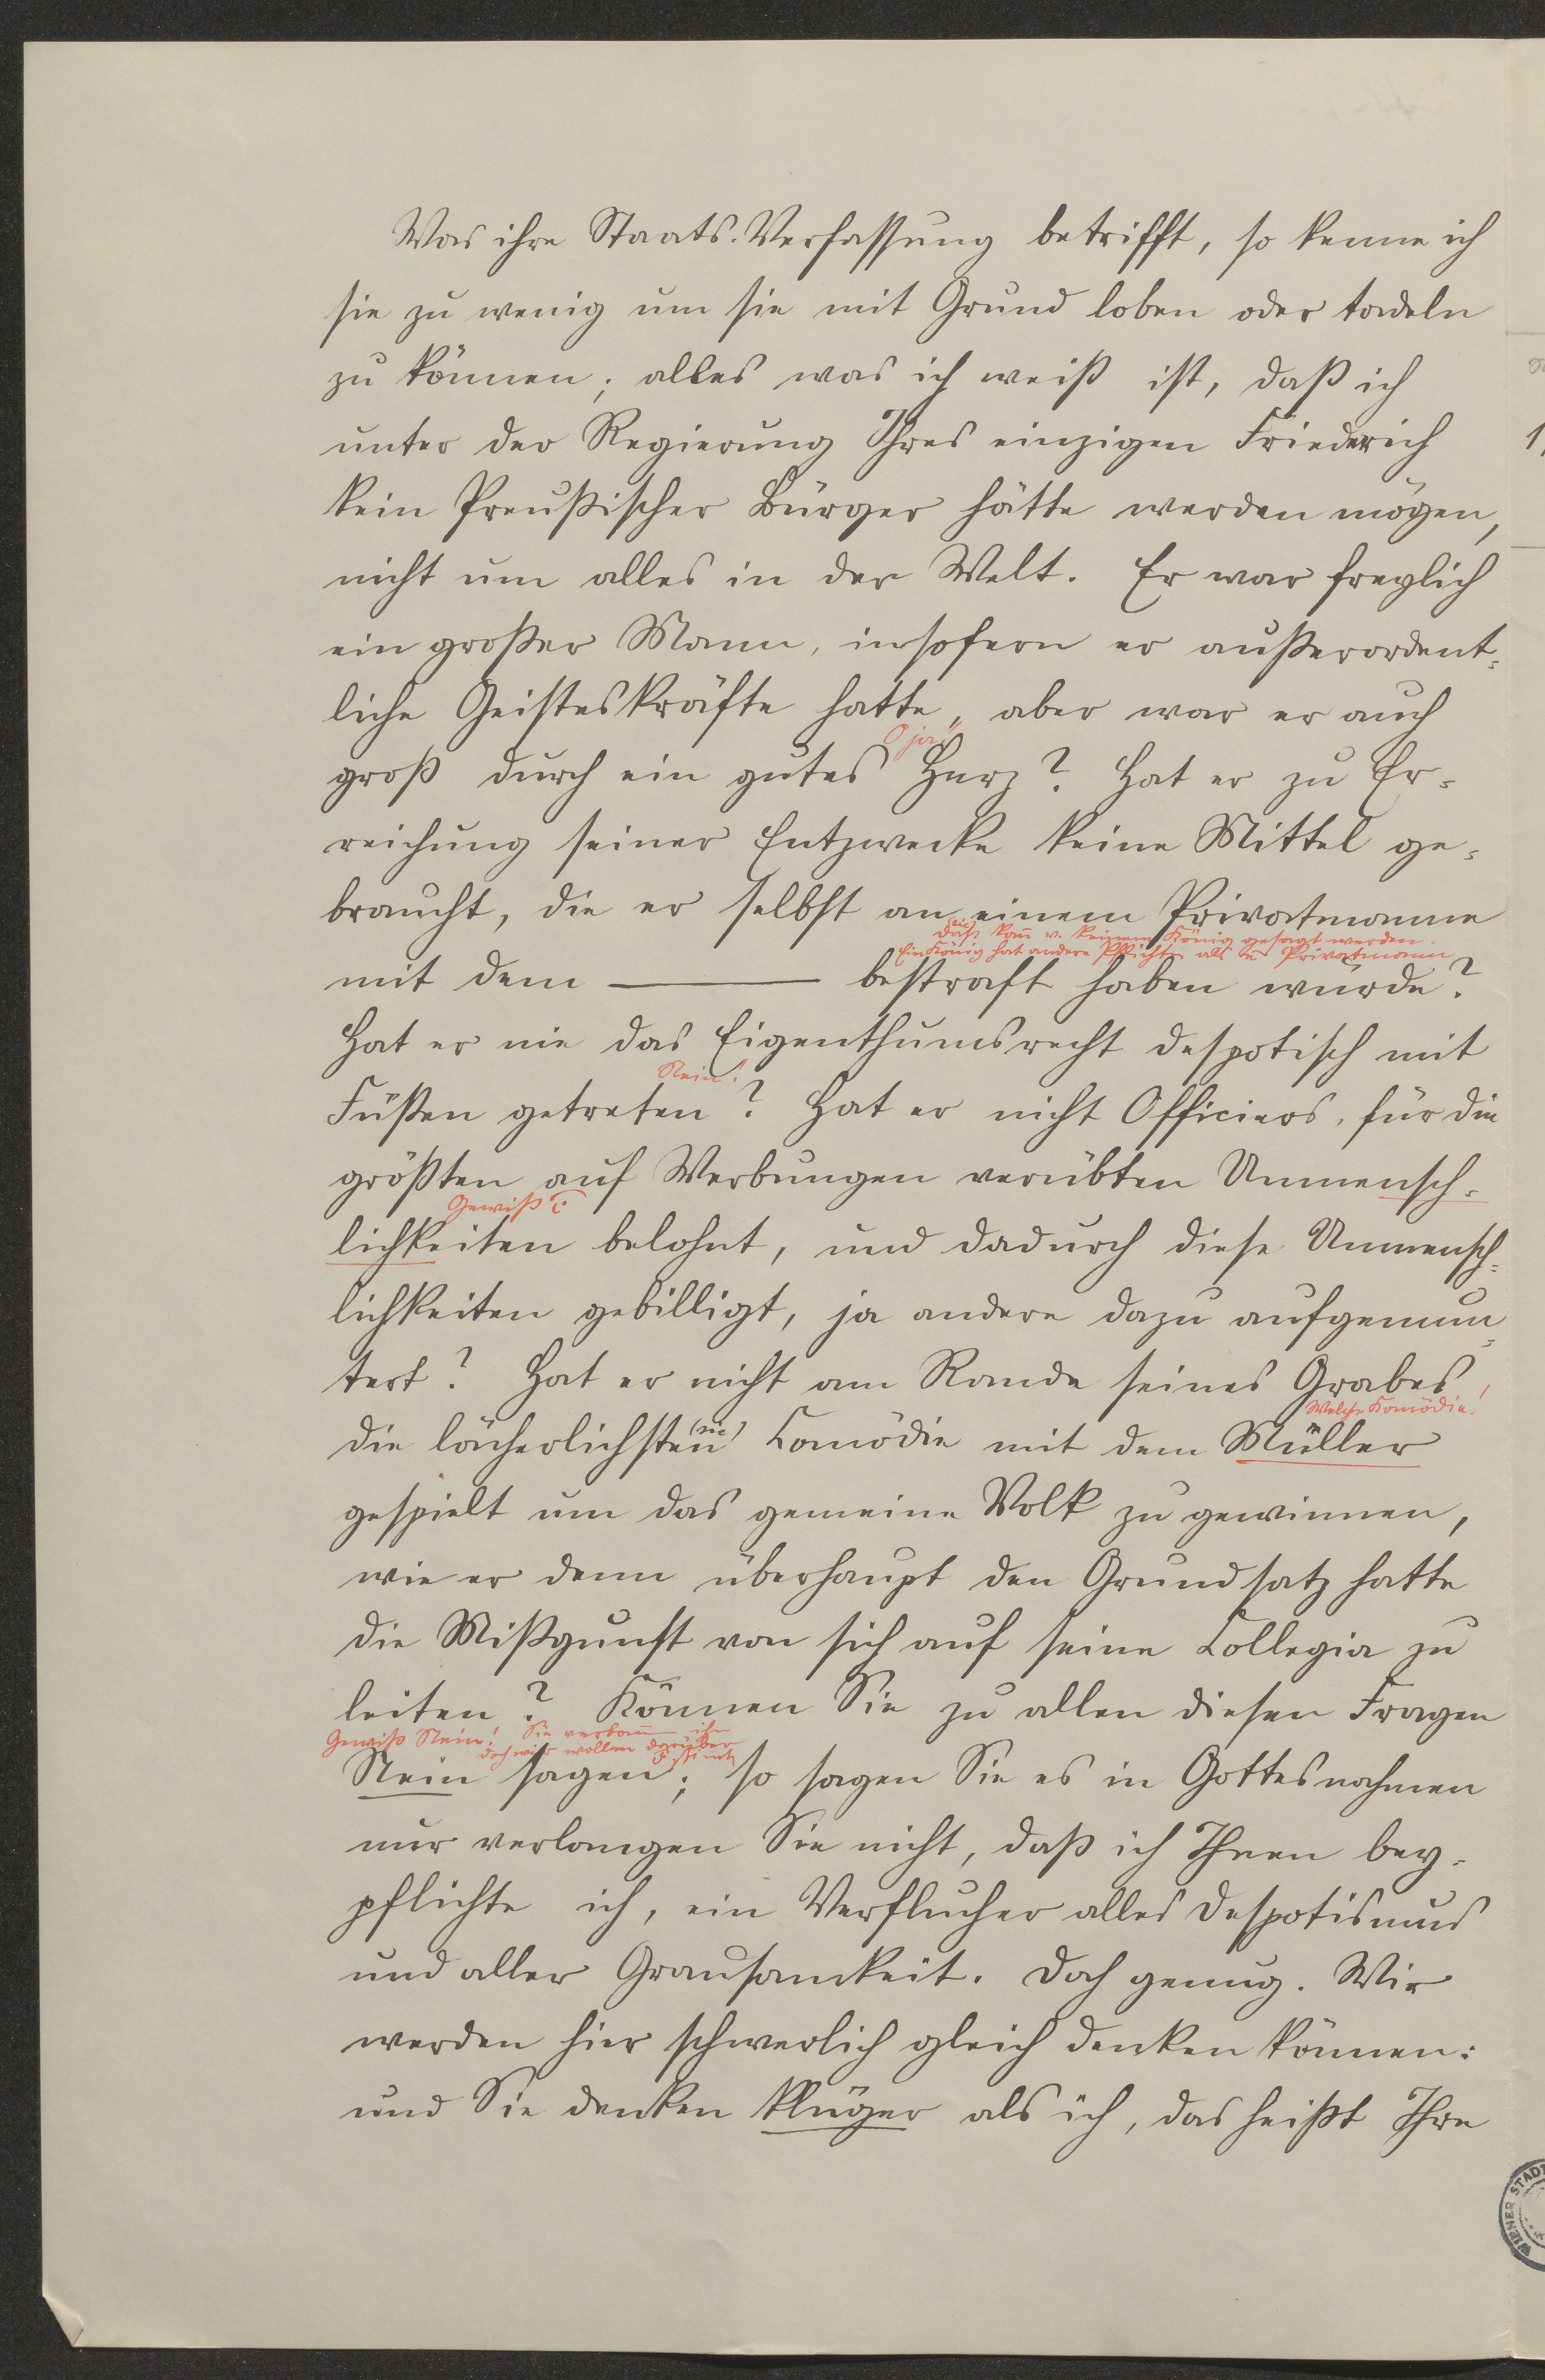 Was ihre Staats-Verfassung betrifft, so kenne ich
sie zu wenig um sie mit Grund loben oder tadeln
zu können; alles was ich weiß ist, daß ich
unter der Regierung Ihres einzigen Friederich
kein Preußischer Bürger hätte werden mögen,
nicht um alles in der Welt. Er war freylich
ein großer Mann, insofern er außerordent-
liche Geisteskräfte hatte, aber war er auch
O ja!
groß durch ein gutes Herz? Hat er zu Er-
reichung seiner Entzwecke keine Mittel ge-
braucht, die er selbst an einem Privatmanne
(sic)
daß kann v. keinem König gesagt werden.
Ein König hat andere Pflichten als e Privatmann
mit dem ——— bestraft haben würde?
Hat er nie das Eigenthumsrecht despotisch mit
Nein!
Füßen getreten? Hat er nicht Officiers, für die
größten auf Werbungen verübten Unmensch-
Gewiß
lichkeiten belohnt, und dadurch diese Unmensch-
lichkeiten gebilligt, ja andere dazu aufgemun-
tert? Hat er nicht am Rande seines Grabes
Welche Komödie!
die lächerlichsten (sic) Comödie mit dem Müller
gespielt um das gemeine Volk zu gewinnen,
wie er denn überhaupt den Grundsatz hatte
die Mißgunst von sich auf seine Collegia zu
leiten? Können Sie zu allen diesen Fragen
Gewiß Nein! Sie ihn
doch wir wollen darüber
Nein sagen; so sagen Sie es in Gottesnahmen
nur verlangen Sie nicht, daß ich Ihnen bey-
pflichte ich, ein Verflucher alles Despotismus
und aller Grausamkeit. Doch genug. Wir
werden hier schwerlich gleich denken können:
und Sie denken klüger als ich, das heißt Ihre
WIENER STADT